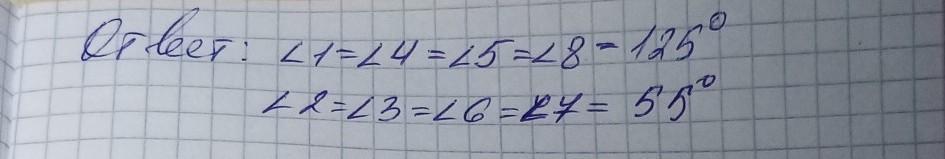 Ответ: ∠1=∠4=∠5=∠8=125°
∠2=∠3=∠6=∠7=55°